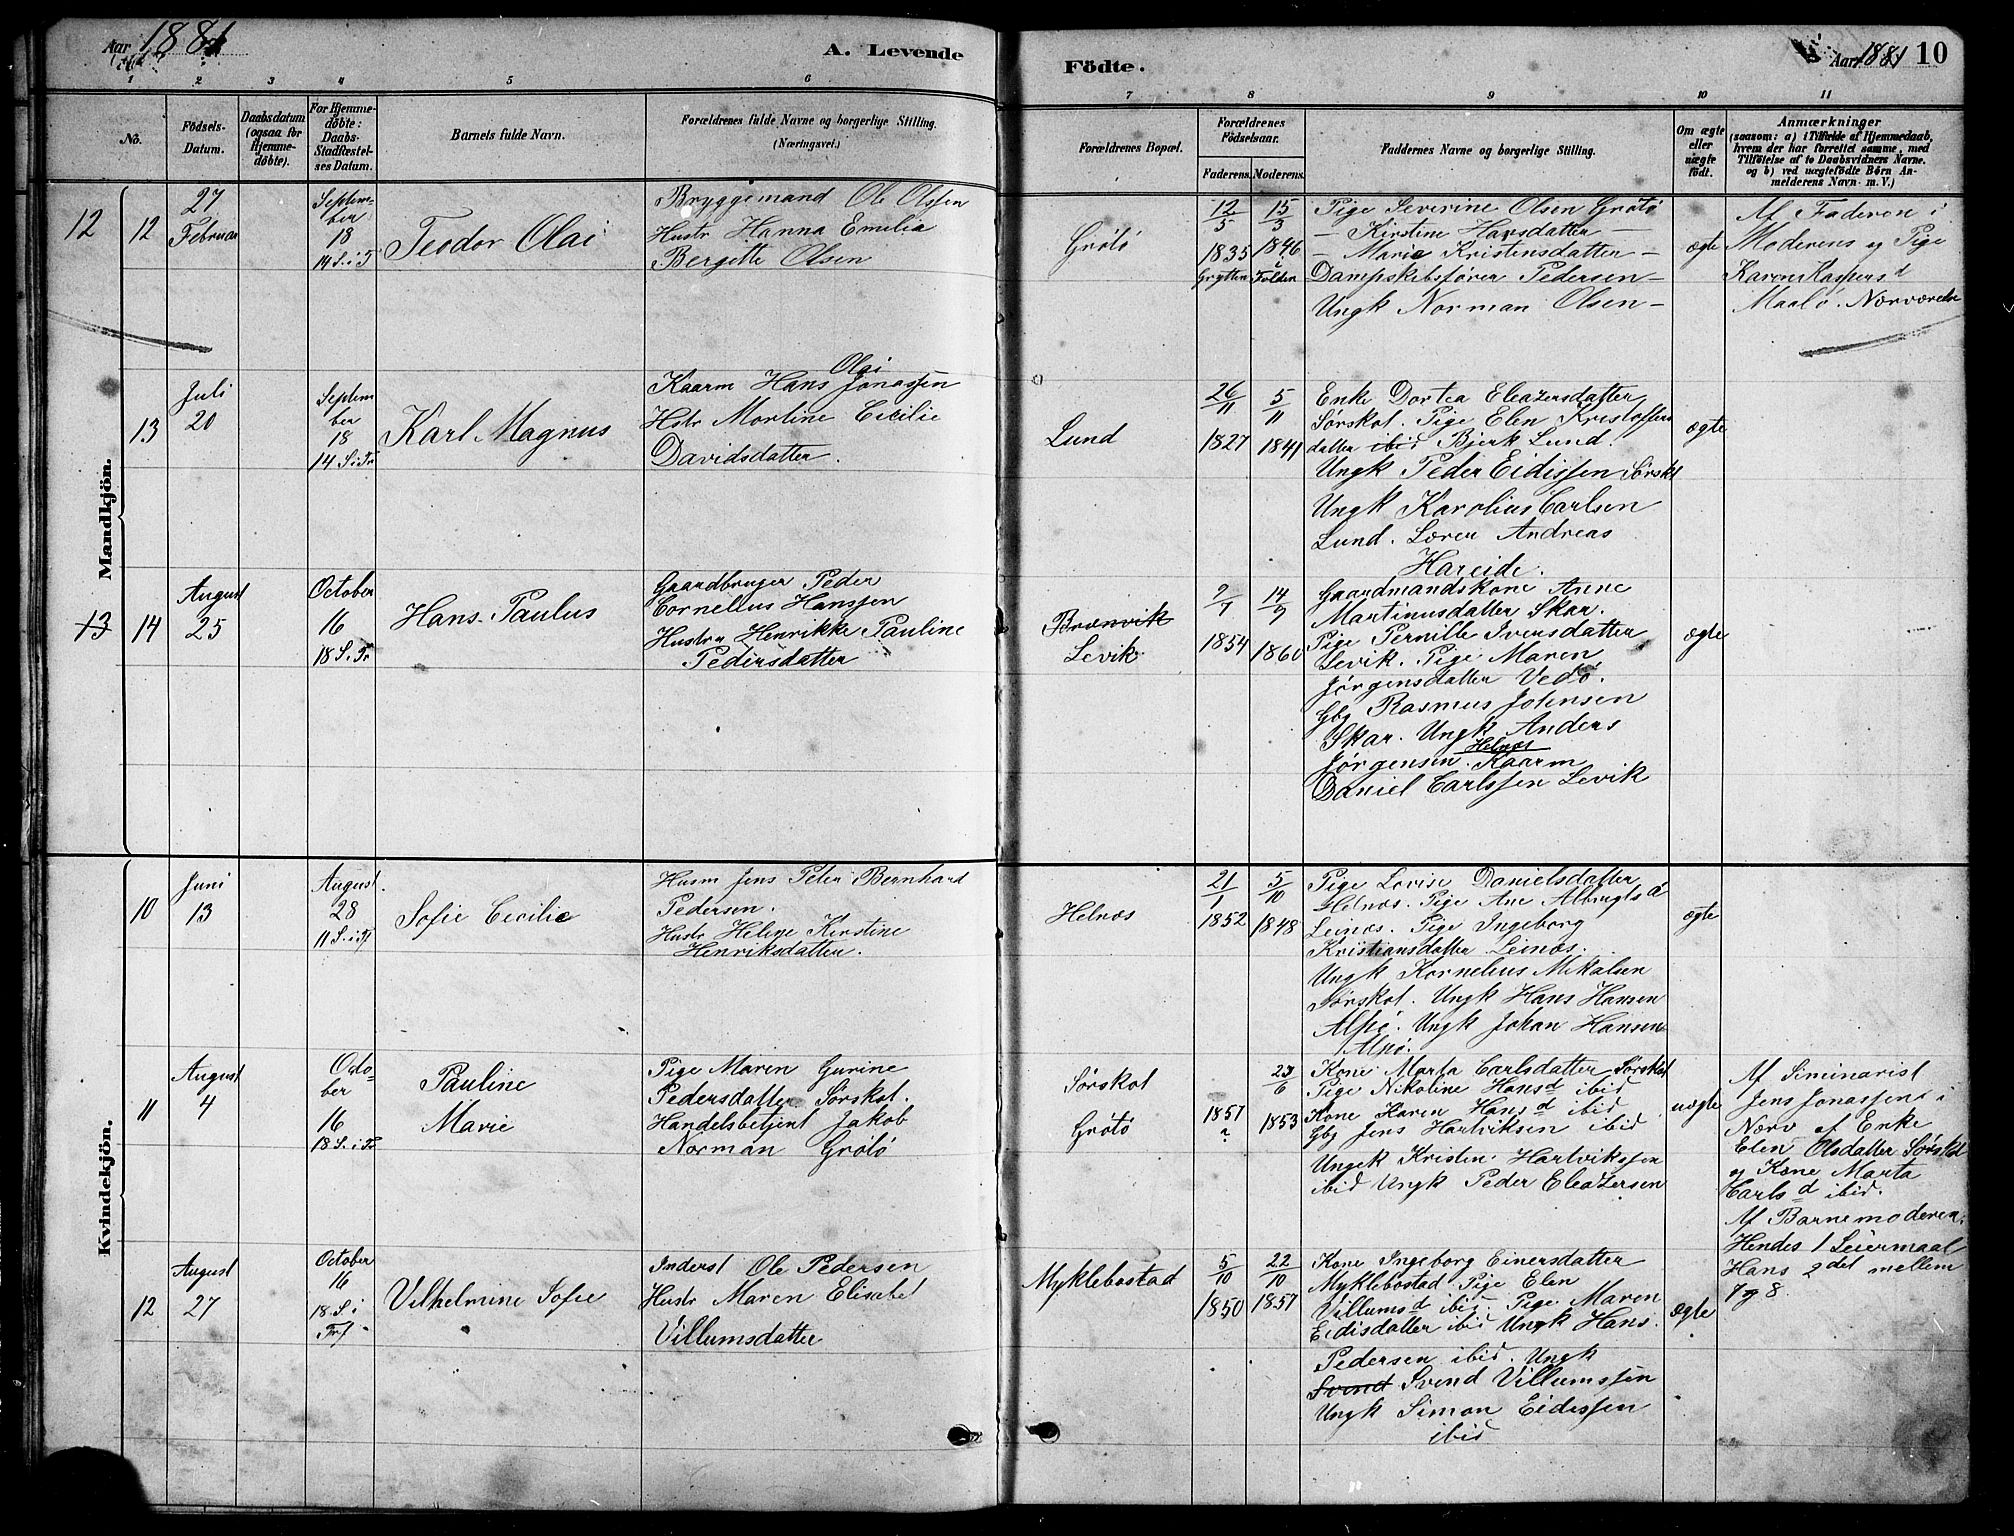 Aar 1881
A. Levende
Födte.
Aar 1881 10
1 2 3 4 5 6 7 8 9 10 11
No.
Födsels-
Datum.
Daabsdatum
(ogsaa for
Hjemme-
døbte).
For Hjemme-
døbte:
Daabs-
Stadfæstel-
ses Datum.
Barnets fulde Navn.
Forældrenes fulde Navne og borgerlige Stilling.
(Næringsvei.)
Forældrenes Bopæl.
Forældrenes
Födselsaar.
Faderens. Moderens.
Faddernes Navne og borgerlige Stilling.
Om ægte
eller
uægte
født.
Anmærkninger
(saasom: a) i Tilfælde af Hjemmedaab,
hvem der har forrettet samme, med
Tilföielse af to Daabsvidners Navne.
og b) ved uægtefödte Börn An-
melderens Navn m. V.)
Mandkjön.
12 12
27
Februar
Septem-
ber
18
14 S. i T
Teodor Olai
Bryggemand Ole Olssen
Hustr Hanna Emelia
Bergitte Olsen
Grötö
12/5
1835
Grytten
15/3
1846
i
Folden
Pige Severine Olsen Grötö
— Kirstine Hansdatter —
— Marie Kristensdatter —
Dampskibsfører Pedersen —
Ungk Norman Olsen —
ægte
Af Faderen i
Moderens og Pige
Karen Kaspersd
Maalö. Nærværelse
13
Juli
20
Septem
ber
18
14 S. i Tr
Karl Magnus
Olai
Kaarm Hans Jonassen
Hstr Martine Cecilie
Davidsdatter.
Lund
26/11
1827
5/11
1841
Enke Dortea Eleazersdatter
Sørskot. Pige Elen Kristoffers
datter ibid Bjerk Lund.
Ungk Peder Eidissen Sørskt
Ungk Karolius Carlsen
Lund. Lærer Andreas
Hareide.
ægte
13 14
August
25
October
16
18 S. Tr
Hans Paulus
Gaardbruger Peder
Cornelius Hanssen
Hustru Henrikke Pauline
Pedersdatter
Brænvik
Levik
9/7
1854
14/9
1860
Gaardmandskone Anne
Martinusdatter Skar.
Pige Pernille Iversdatter
Levik. Pige Maren
Jørgensdatter Vedö.
Gbg Rasmus Johnsen
Skar. Ungk Anders
Helnæs
Jørgensen. Kaarm
Daniel Carlssen Levik
ægte
Kvindekjön.
10
Juni
13
August.
28
11 S. i Tf
Sofie Cecilie
Husm Jens Peter Bernhard
Pedersen.
Hustr Helene Kirstine
Henriksdatter.
Helnæs
21/1
1852
5/10
1848
Pige Lovise Danielsdatter
Helnæs. Pige Ane Albrigts d
Leinæs. Pige Ingeborg
Kristiansdatter Leinæs.
Ungk Kornelius Mikalsen
Sørskot. Ungk Hans Hansen
Alpö. Ungk Johan Hansen
Alpö.
ægte
11
August
4
Octo-
ber
16
18 S. i Tr
Pauline
Marie
Pige Maren Gurine
Pedersdatter Sørskot.
Handelsbetjent Jakob
Norman Grötö
Sørskot
Grötö
1857
?
23/6
1853
Kone Marta Carlsdatter Sørskot
Pige Nikoline Hansd ibid
Kone Karen Hansd ibid
Gbg Jens Hartviksen ibid
Ungk Kristen Hartvikssen
ibid Ungk Peder Eleazersen
uægte
Af Siminarist
Jens Jonassen i
Nærv af Enke
Elen Olsdatter Sørskot
og Kone Marta
Karlsd ibid.
Af Barnemoderen.
Hendes 1 Leiermaal
Hans 2det mellem
7 og 8.
12
August
27
October
16
18 S. i
Trf
Vilhelmine Sofie
Inderst Ole Pedersen
Hustr Maren Elisabet
Villumsdatter
Myklebostad
5/10
1850
22/10
1857
Kone Ingeborg Einersdatter
Myklebostad Pige Elen
Villumsd ibid. Pige Maren
Eidisdatter ibid Ungk Hans
Pedersen ibid. Ungk
Svend Svend Villumssen
Ungk Simon Eidissen
ibid
ægte